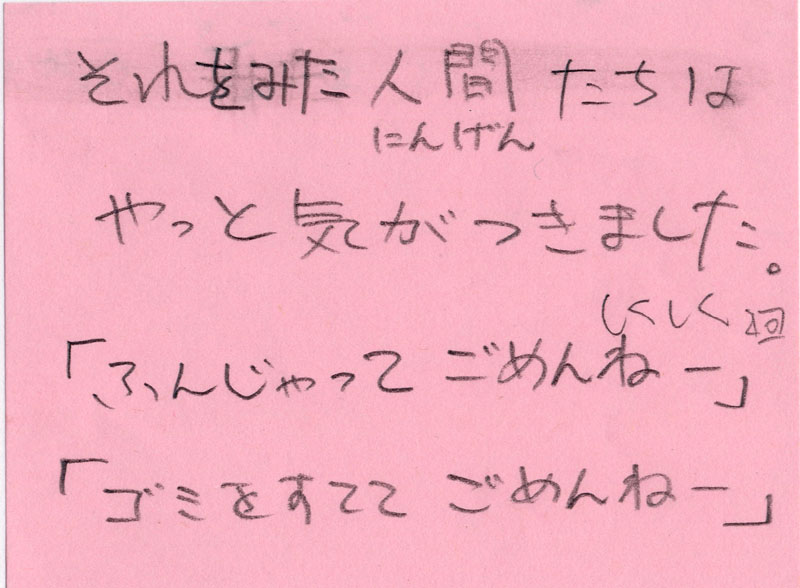 それをみた人間たちは
にんげん
やっと気がつきました。
しくしく 2回
「ふんじゃって ごめんねー」
「ゴミをすてて ごめんねー」